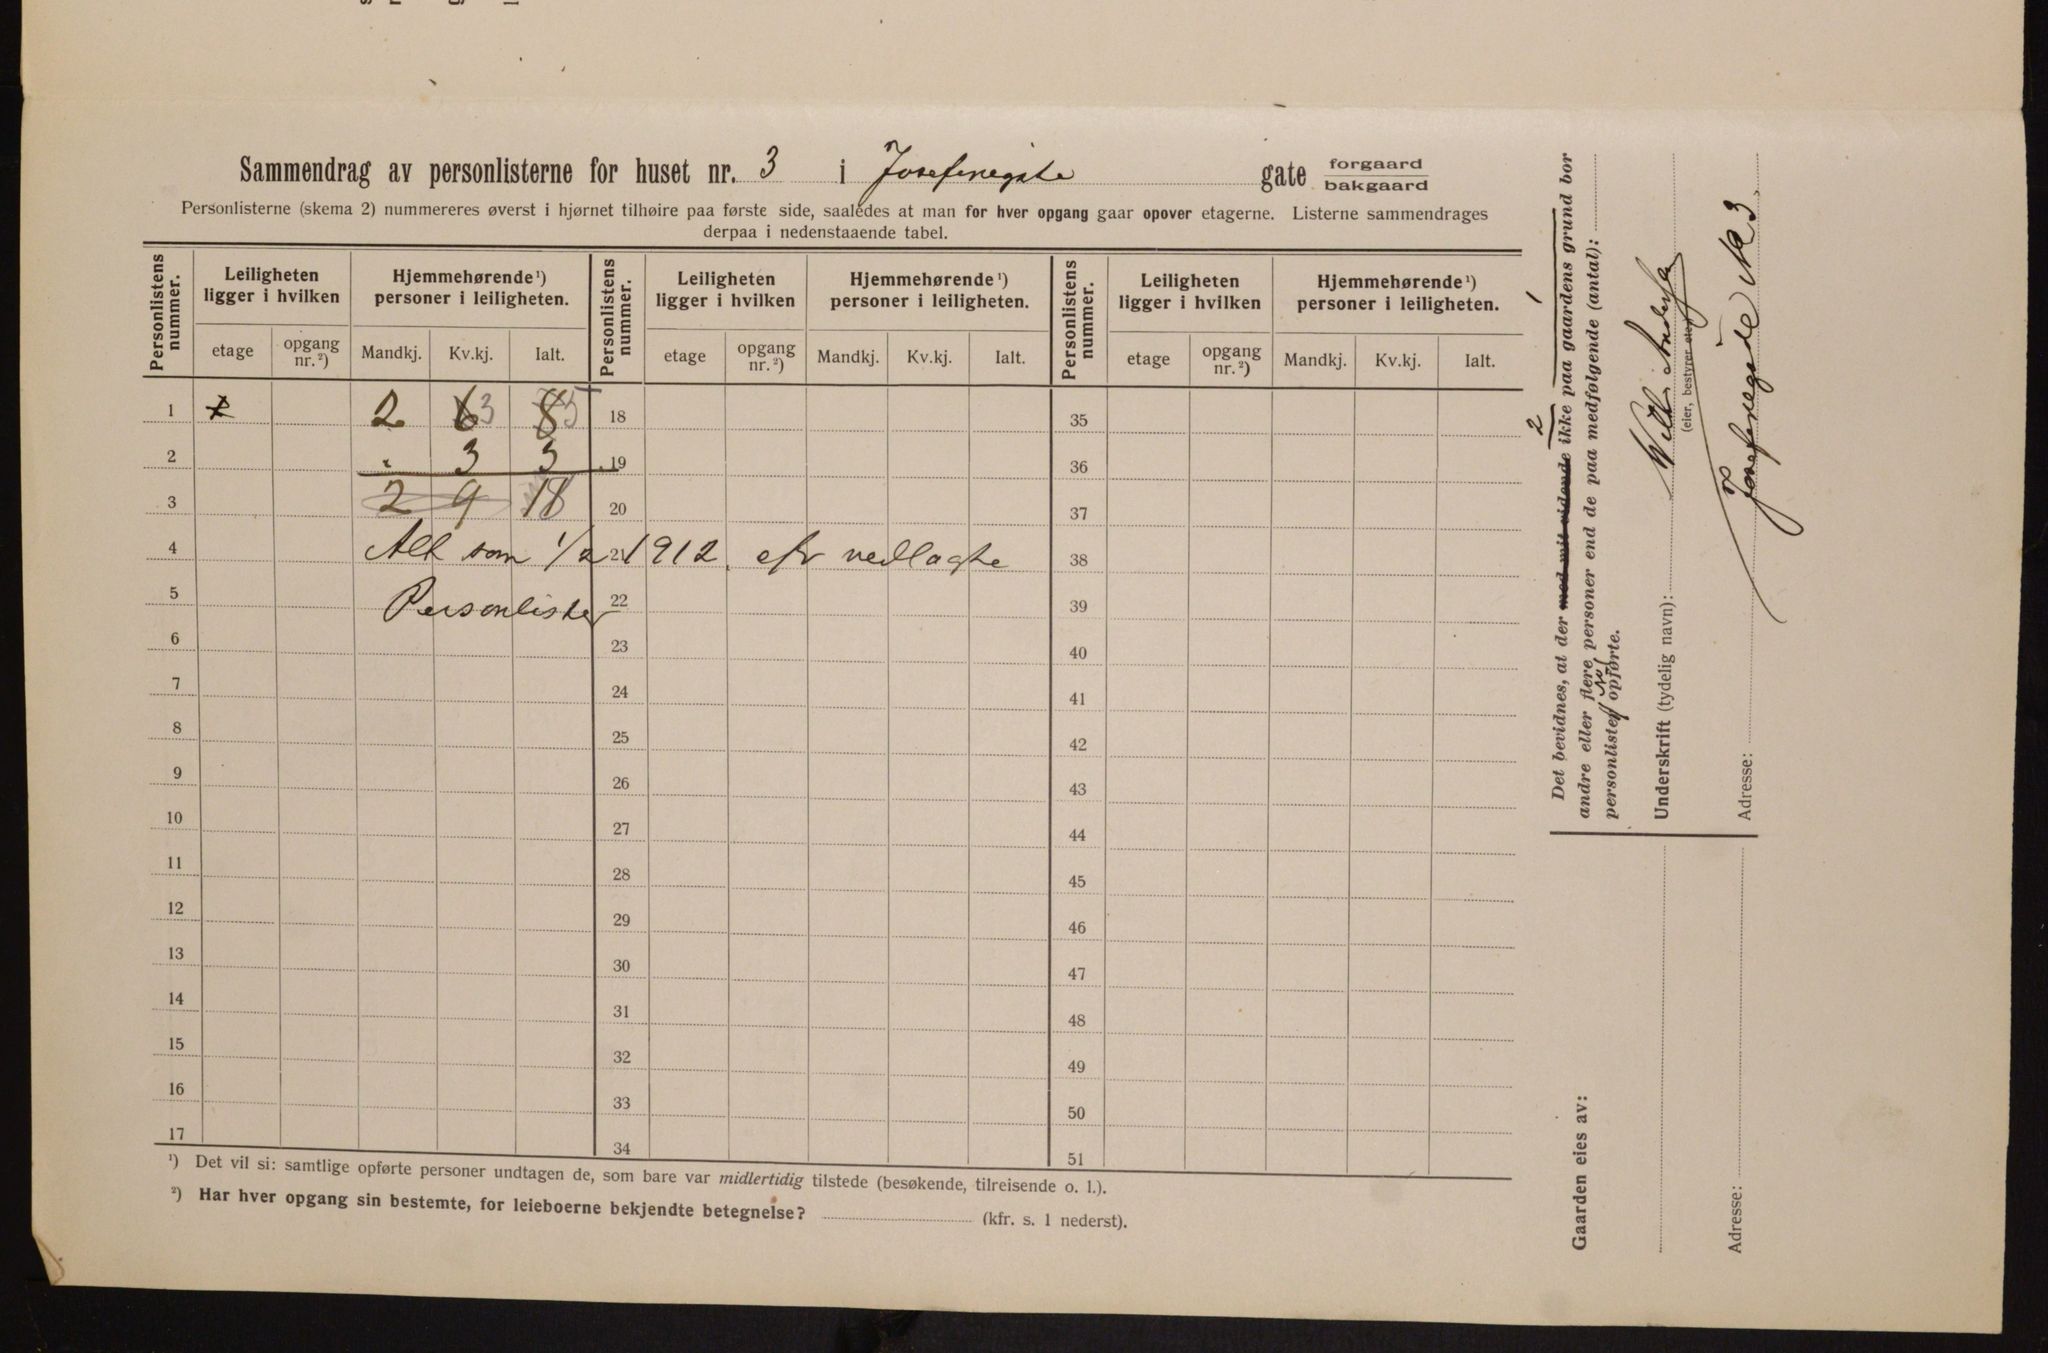 Sammendrag av personlisterne for huset nr. 3 i Josefinegate gate forgaard bakgaard
Personlisterne (skema 2) nummereres øverst i hjørnet tilhøire paa første side, saaledes at man for hver opgang gaar opover etagerne. Listerne sammendrages
derpaa i nedenstaaende tabel.
Personlistens nummer. Leiligheten ligger i hvilken Hjemmehørende ¹) personer i leiligheten. Personlistens nummer. Leiligheten ligger i hvilken Hjemmehørende ¹) personer i leiligheten. Personlistens nummer. Leiligheten ligger i hvilken Hjemmehørende ¹) personer i leiligheten.
etage opgang nr. ²) Mandkj. Kv.kj. Ialt. etage opgang nr. ²) Mandkj. Kv.kj. Ialt. etage opgang nr. ²) Mandkj. Kv.kj. Ialt.
1 2 6 3 8 5 18 35
2 3 3 19 36
3 2 9 18 20 37
4 Alt som 1/2 1912 efr vedlagte 21 38
5 Personlister 22 39
6 23 40
7 24 41
8 25 42
9 26 43
10 27 44
11 28 45
12 29 46
13 30 47
14 31 48
15 32 49
16 33 50
17 34 51
¹) Det vil si: samtlige opførte personer undtagen de, som bare var midlertidig tilstede (besøkende, tilreisende o. l.).
²) Har hver opgang sin bestemte, for leieboerne bekjendte betegnelse? (kfr. s. 1 nederst).
Det bevidnes, at der med mit vidende ikke paa gaardens grund bor
andre eller flere personer end de paa medfølgende (antal):
personlister opførte.
2 1
Underskrift (tydelig navn):
(eier, bestyrer etc.)
Adresse: Josefinegade No 3
Gaarden eies av:
Adresse: